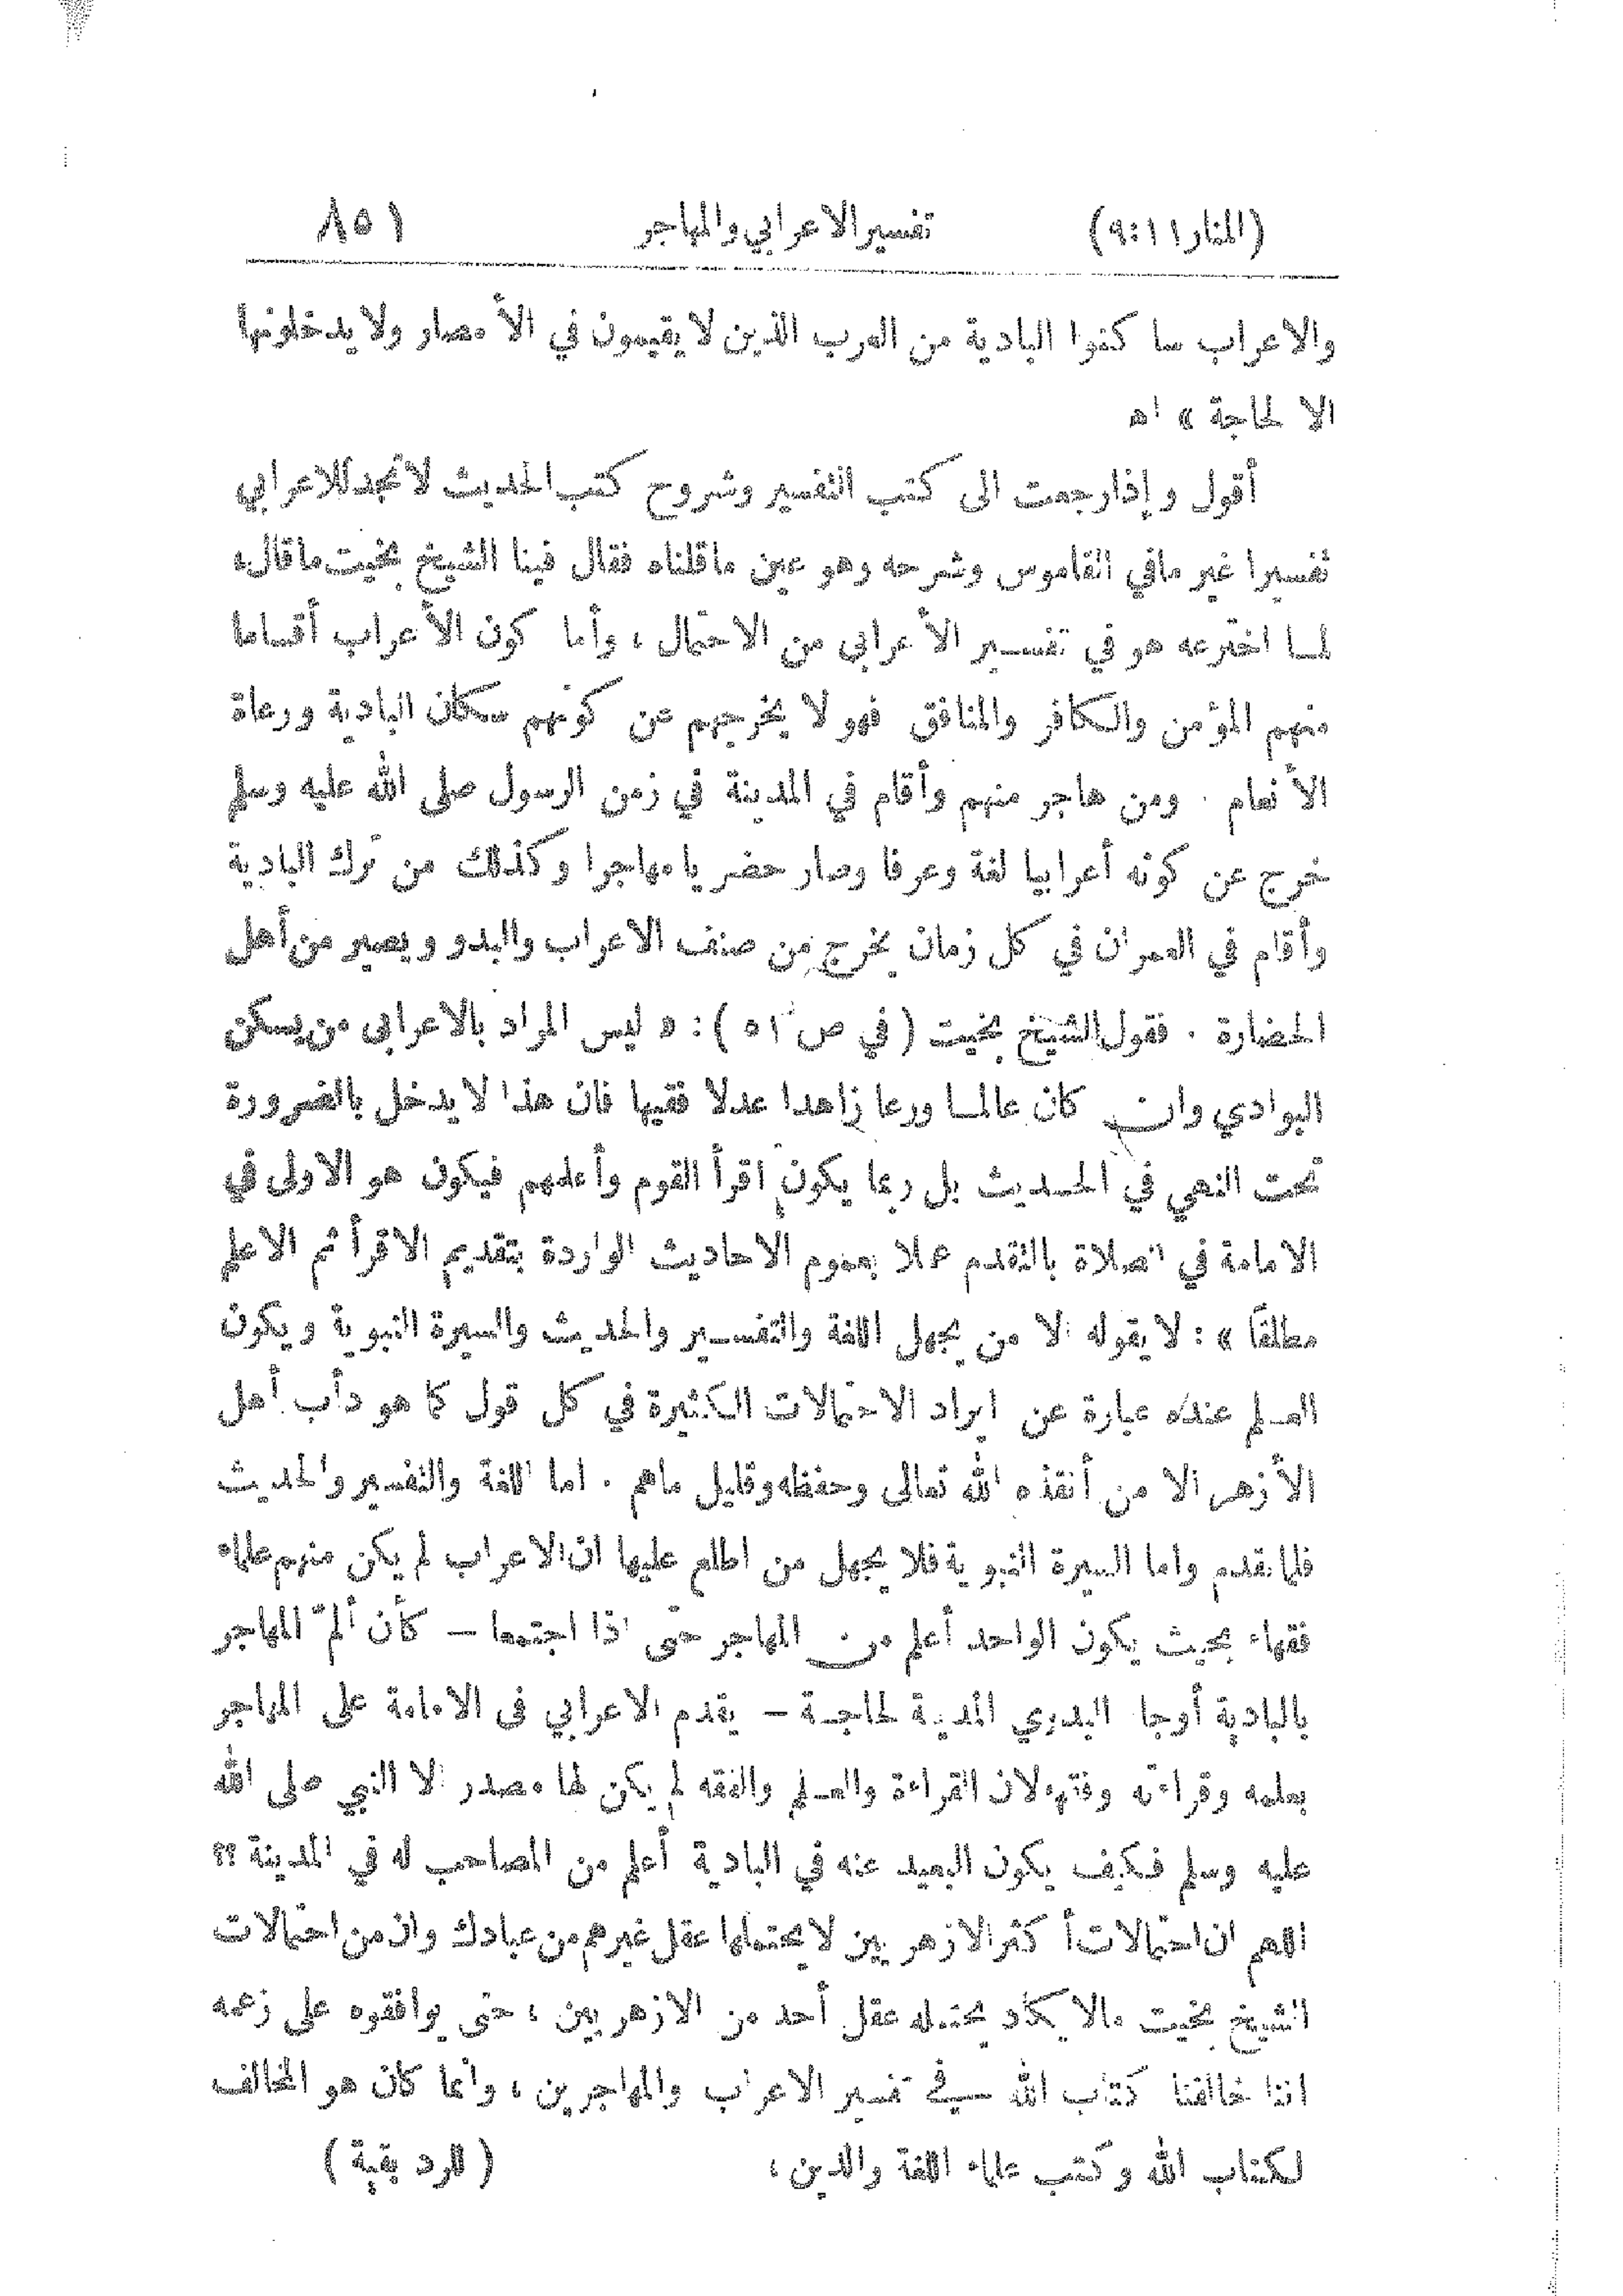 (المنار ١١:٩) تفسير الاعرابي والمهاجر ٨٥١
والاعراب ساكنوا البادية من العرب الذين لا يقيمون في الأمصار ولا يدخلونها
الا لحاجة » اه
أقول وإذا رجعت الى كتب التفسير وشروح كتب الحديث لا تجد للاعرابي
تفسيرا غير مافي القاموس وشرحه وهو عين ماقلناه فقال فينا الشيخ بخيت ماقاله
لما اخترعه هو في تفسير الأعرابي من الاحتمال ، وأما كون الأعراب أقساما
منهم المؤمن والكافر والمنافق فهو لا يخرجهم عن كونهم سكان البادية ورعاة
الأنعام . ومن هاجر منهم وأقام في المدينة في زمن الرسول صلى الله عليه وسلم
خرج عن كونه أعرابيا لغة وعرفا وصار حضريا مهاجرا وكذلك من ترك البادية
وأقام في العمران في كل زمان يخرج من صنف الاعراب والبدو ويصير من أهل
الحضارة . فقول الشيخ بخيت ( في ص ٥١ ) : « ليس المراد بالاعرابي من يسكن
البوادي وان كان عالما ورعا زاهدا عدلا فقيها فان هذا لا يدخل بالضرورة
تحت النهي في الحديث بل ربما يكون اقرأ القوم وأعلمهم فيكون هو الاولى في
الامامة في الصلاة بالتقدم عملا بعموم الاحاديث الواردة بتقديم الاقرأ ثم الاعلم
مطلقا » : لا يقوله الا من يجهل اللغة والتفسير والحديث والسيرة النبوية ويكون
العلم عنده عبارة عن ايراد الاحتمالات الكثيرة في كل قول كما هو دأب أهل
الأزهر الا من أنقذه الله تعالى وحفظه وقليل ماهم . اما اللغة والتفسير والحديث
فلما تقدم واما السيرة النبوية فلا يجهل من اطلع عليها ان الاعراب لم يكن منهم علماء
فقهاء بحيث يكون الواحد أعلم من المهاجر حتى اذا اجتمعا – كأن ألمّ المهاجر
بالبادية أوجا البدوي المدينة لحاجة – يقدم الاعرابي في الامامة على المهاجر
بعلمه وقراءته وفقهه لان القراءة والعلم والفقه لم يكن لها مصدر الا النبي صلى الله
عليه وسلم فكيف يكون البعيد عنه في البادية أعلم من المصاحب له في المدينة ؟؟
اللهم ان احتمالات أكثر الازهريين لا يحتملها عقل غيرهم من عبادك وان من احتمالات
الشيخ بخيت مالا يكاد يحتمله عقل أحد من الازهريين ، حتى يوافقوه على زعمه
اننا خالفنا كتاب الله في تفسير الاعراب والمهاجرين ، وانما كان هو المخالف
لكتاب الله وكتب علماء اللغة والدين ، ( للرد بقية )